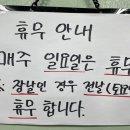 휴무 안내
매주 일요일은 휴무
※ 장날인 경우 전날(토요
휴무 합니다.